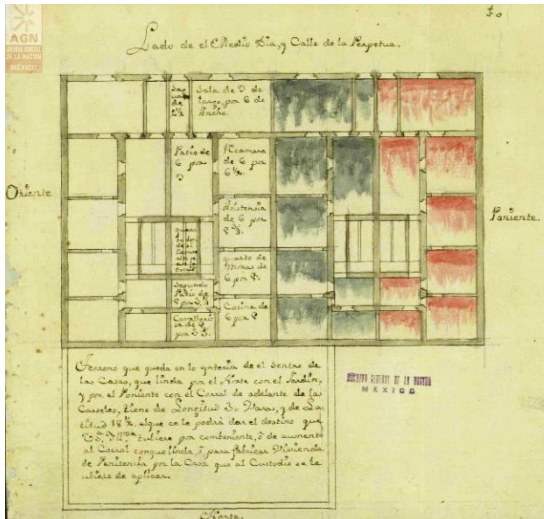 AGN
ARCHIVO GENERAL
DE LA NACIÓN
MÉXICO
Lado de el Medio Dia, y Calle de la Perpetua.
Sala de 9 de
largo por 6 de
Ancho
Patio de
6 por
9
Recamara
de 6 por
6 ½
Asistencia
de 6 por
quarto de
Mozas de
6 por
Segundo
Patio de
Cosina de
6 por
Oriente
Poniente.
Terreno que queda en lo ynterior de el Sentro de
las Casas, que linda por el Norte con el Jardin,
y por el Poniente con el Corral de adelante de las
Carseles, tiene de Longitud 30 Varas, y de La-
titud 18 ¾, al que se le podrá dar el destino que
tubiere por combeniente, ó de aumento
al Corral conque linda, ó para fabricar Vivienda
de Penitencia por la Casa que al Custodio se le
ubiere de aplicar.
ARCHIVO GENERAL DE LA NACION
MEXICO
Norte.